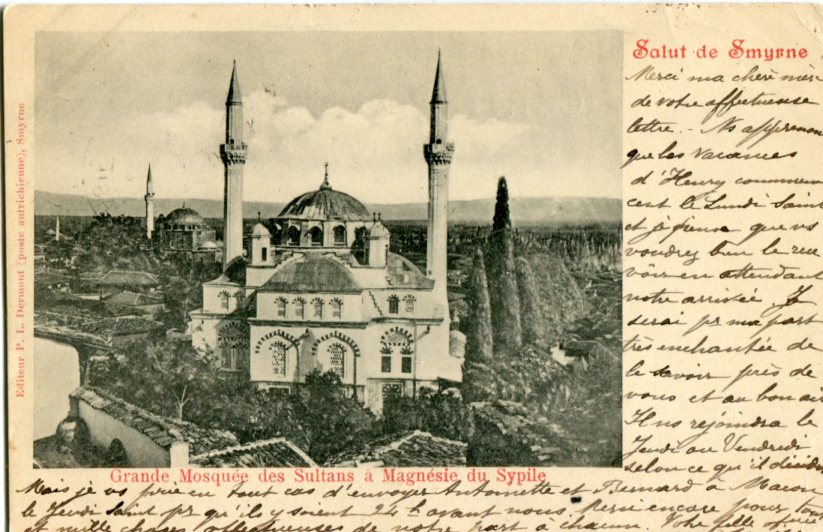 Salut de Smyrne
Merci ma chère mère
de votre affectueuse
lettre. - Ns apprenons
que les vacances
d'Henry commencent
le Lundi Saint
et je pense que vs
voudrez bien le rece
voir en attendant
notre arrivée Je
serai pr ma part
très enchantée de
le savoir près de
vous et au bon air
Il ns rejoindra le
Jeudi ou Vendredi
selon ce qu'il
Editeur P. L. Dermont (poste autrichienne), Smyrne
Grande Mosquée des Sultans à Magnésie du Sypile
Mais je vs prie en tout cas d'envoyer Antoinette et Bernard à Macon
le Jeudi Saint pr qu'ils y soient 24h avant nous. Merci encore pour tout
et mille choses affectueuses de notre part à chacun. Votre fille